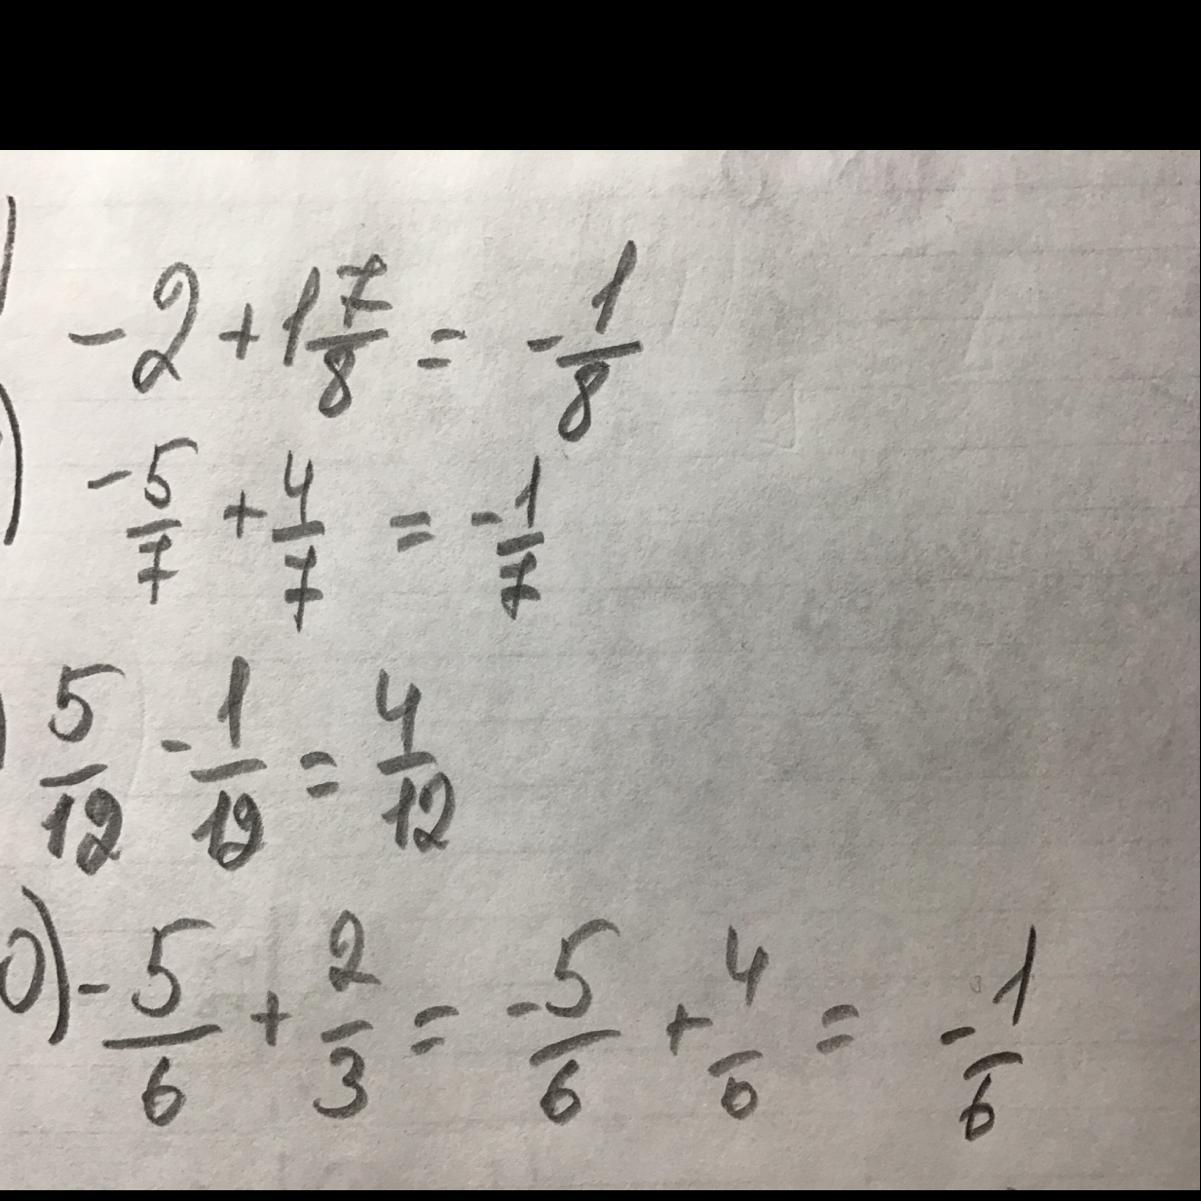 ) -2 + 1 7/8 = - 1/8
) - 5/7 + 4/7 = - 1/7
) 5/12 - 1/12 = 4/12
0) - 5/6 + 2/3 = - 5/6 + 4/6 = - 1/6